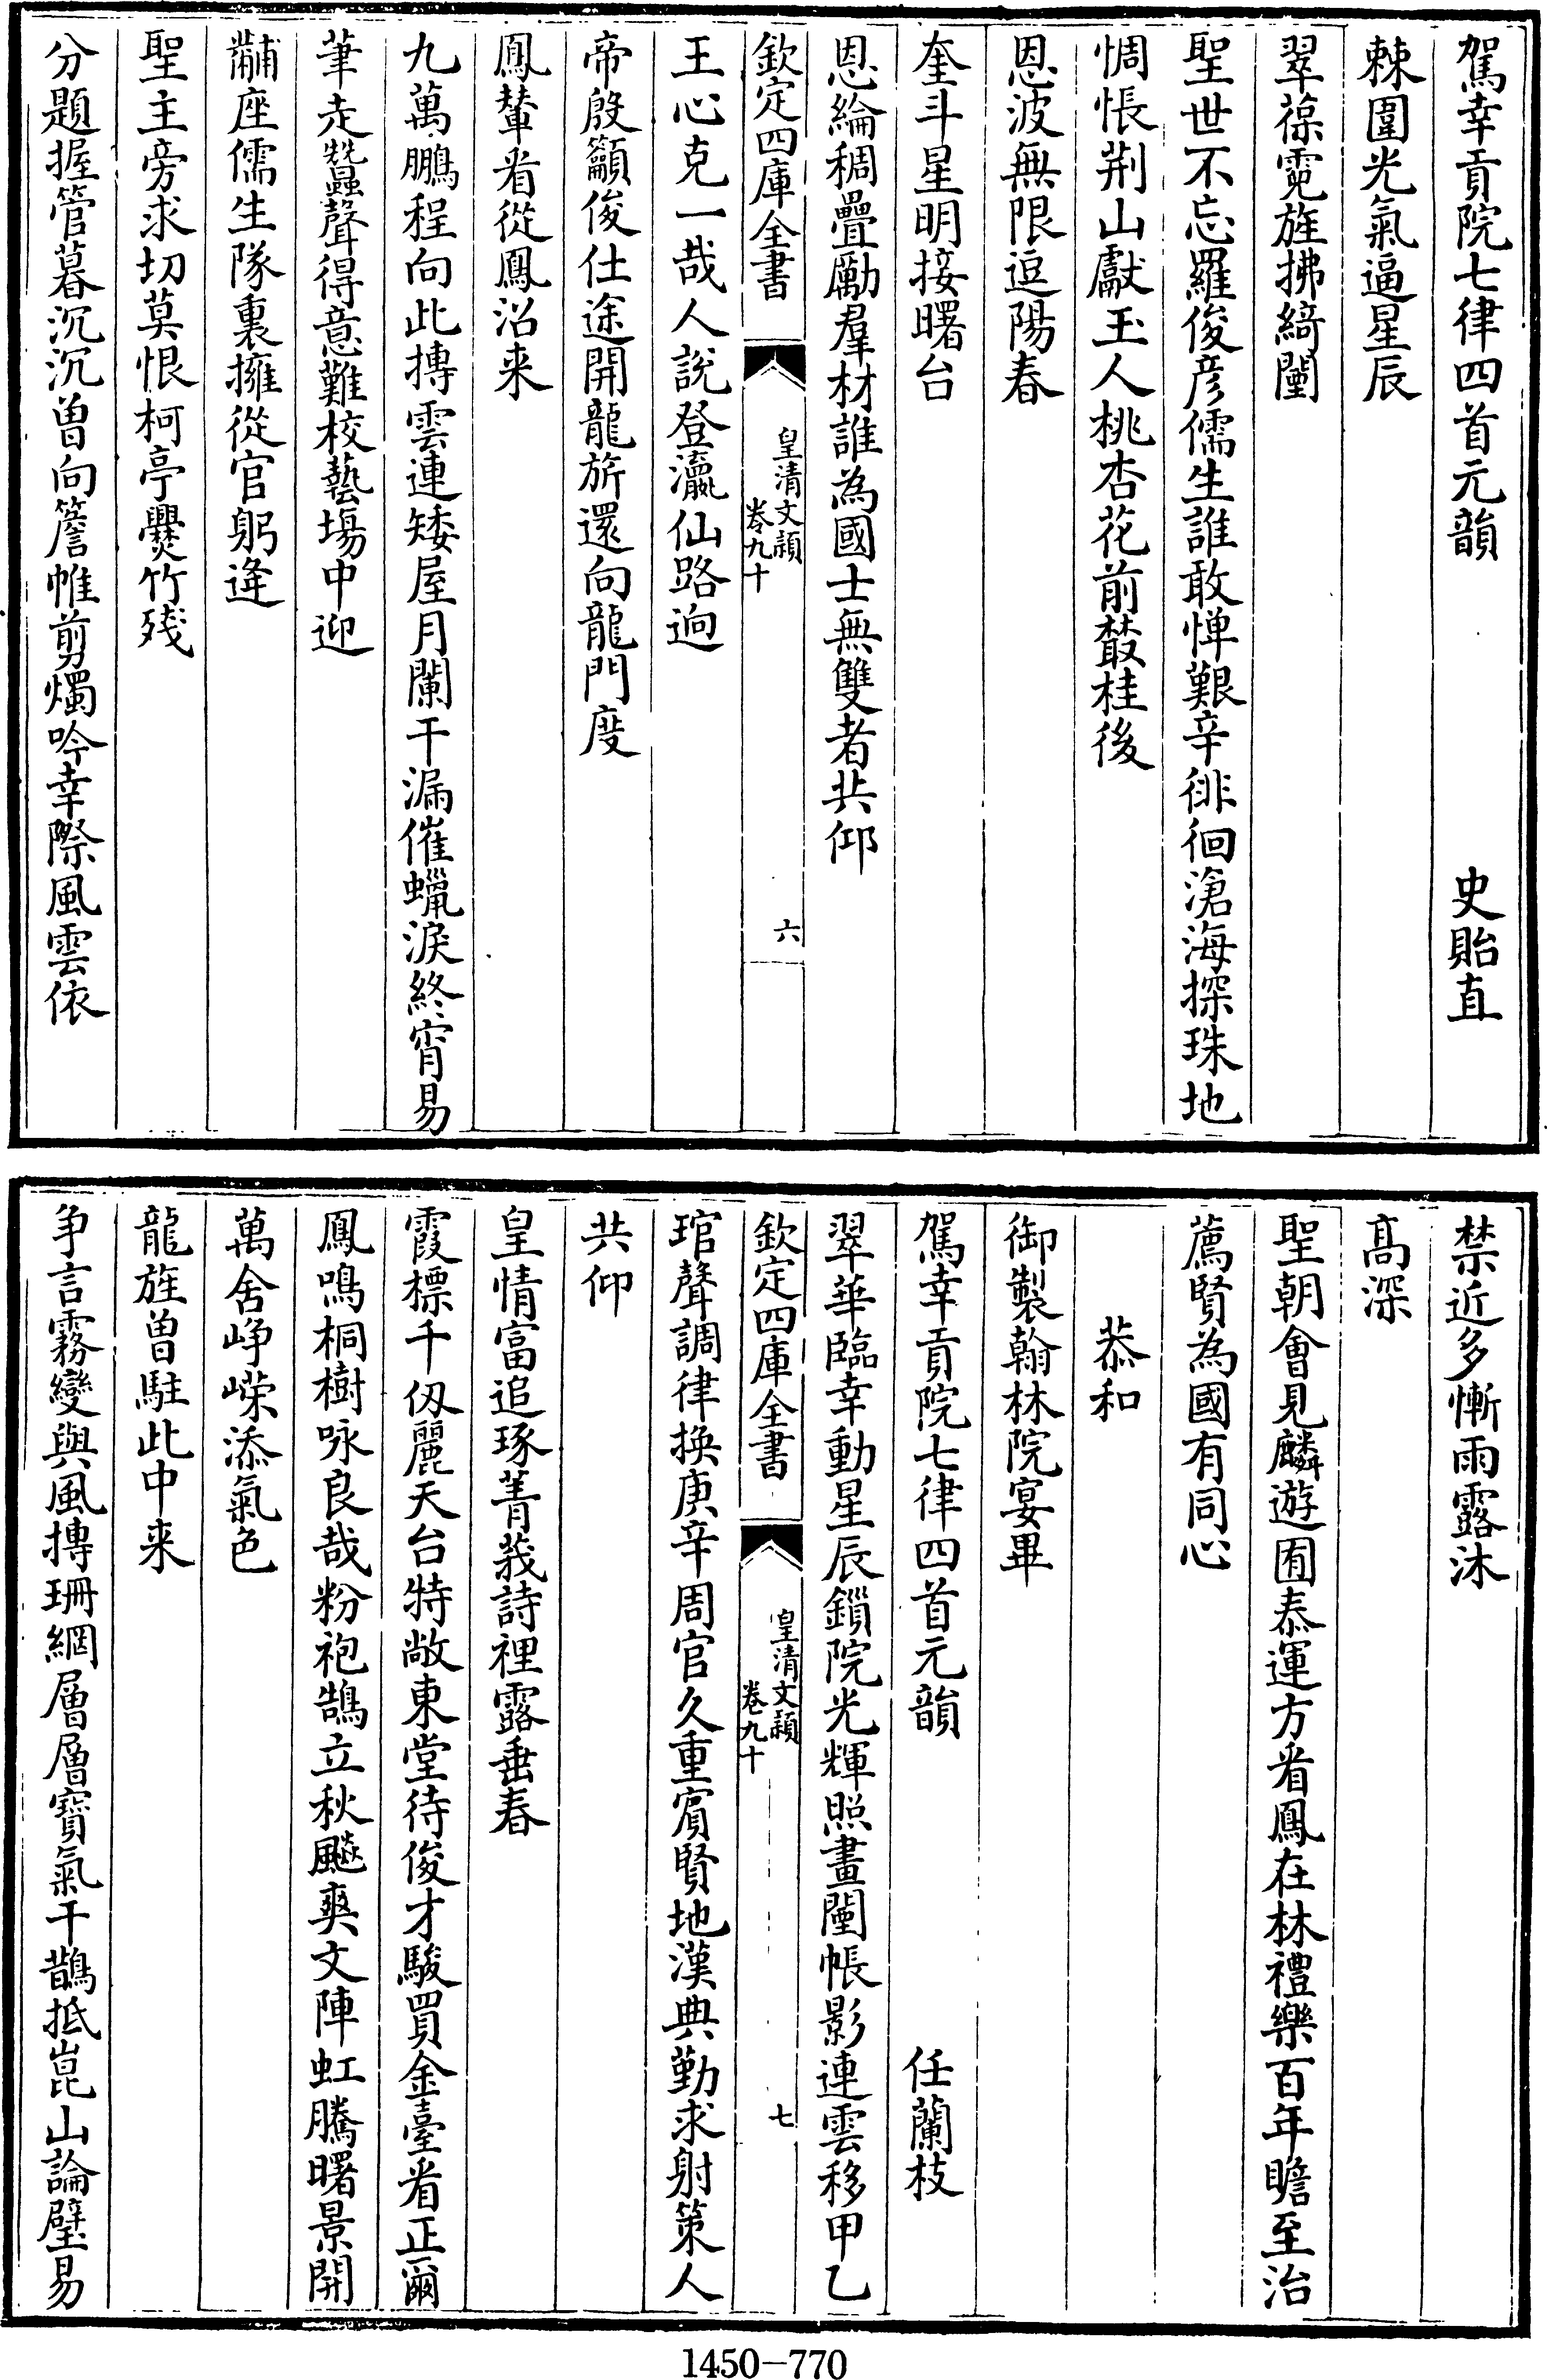 駕幸貢院七律四首元韻 史貽直
棘圍光氣逼星辰
翠葆霓旌拂綺闉
聖世不忘羅俊彦儒生誰敢憚艱辛徘徊滄海探珠地
惆悵荆山獻玉人桃杏花前蕞桂後
恩波無限逗陽春
奎斗星明接曙台
恩綸稠疊勵羣材誰為國士無雙者共仰
欽定四庫全書
皇清文穎
卷九十
六
王心克一哉人說登瀛仙路逈
帝殷籲俊仕途開龍旂還向龍門度
鳳輦看從鳳沼来
九萬鵬程向此摶雲連矮屋月闌干漏催蠟淚終宵易
筆走蠶聲得意難校藝場中迎
黼座儒生隊裏擁從官躬逢
聖主旁求切莫恨柯亭㸑竹残
分題握管暮沉沉曾向簷帷剪燭吟幸際風雲依
禁近多慚雨露沐
髙深
聖朝會見麟遊囿泰運方看鳳在林禮樂百年瞻至治
薦賢為國有同心
恭和
御製翰林院宴畢
駕幸貢院七律四首元韻 任蘭枝
翠華臨幸動星辰鎖院光輝照畫闉帳影連雲移甲乙
欽定四庫全書
皇清文穎
卷九十
七
琯聲調律换庚辛周官久重賓賢地漢典勤求射策人
共仰
皇情富追琢菁莪詩裡露垂春
霞標千仭麗天台特敞東堂待俊才駿買金臺看正爾
鳳鳴桐樹咏良哉粉袍鵠立秋飈爽文陣虹騰曙景開
萬舍峥嵘添氣色
龍旌曽駐此中来
争言霧變與風摶珊網層層寶氣干鵲抵崑山論璧易
1450-770